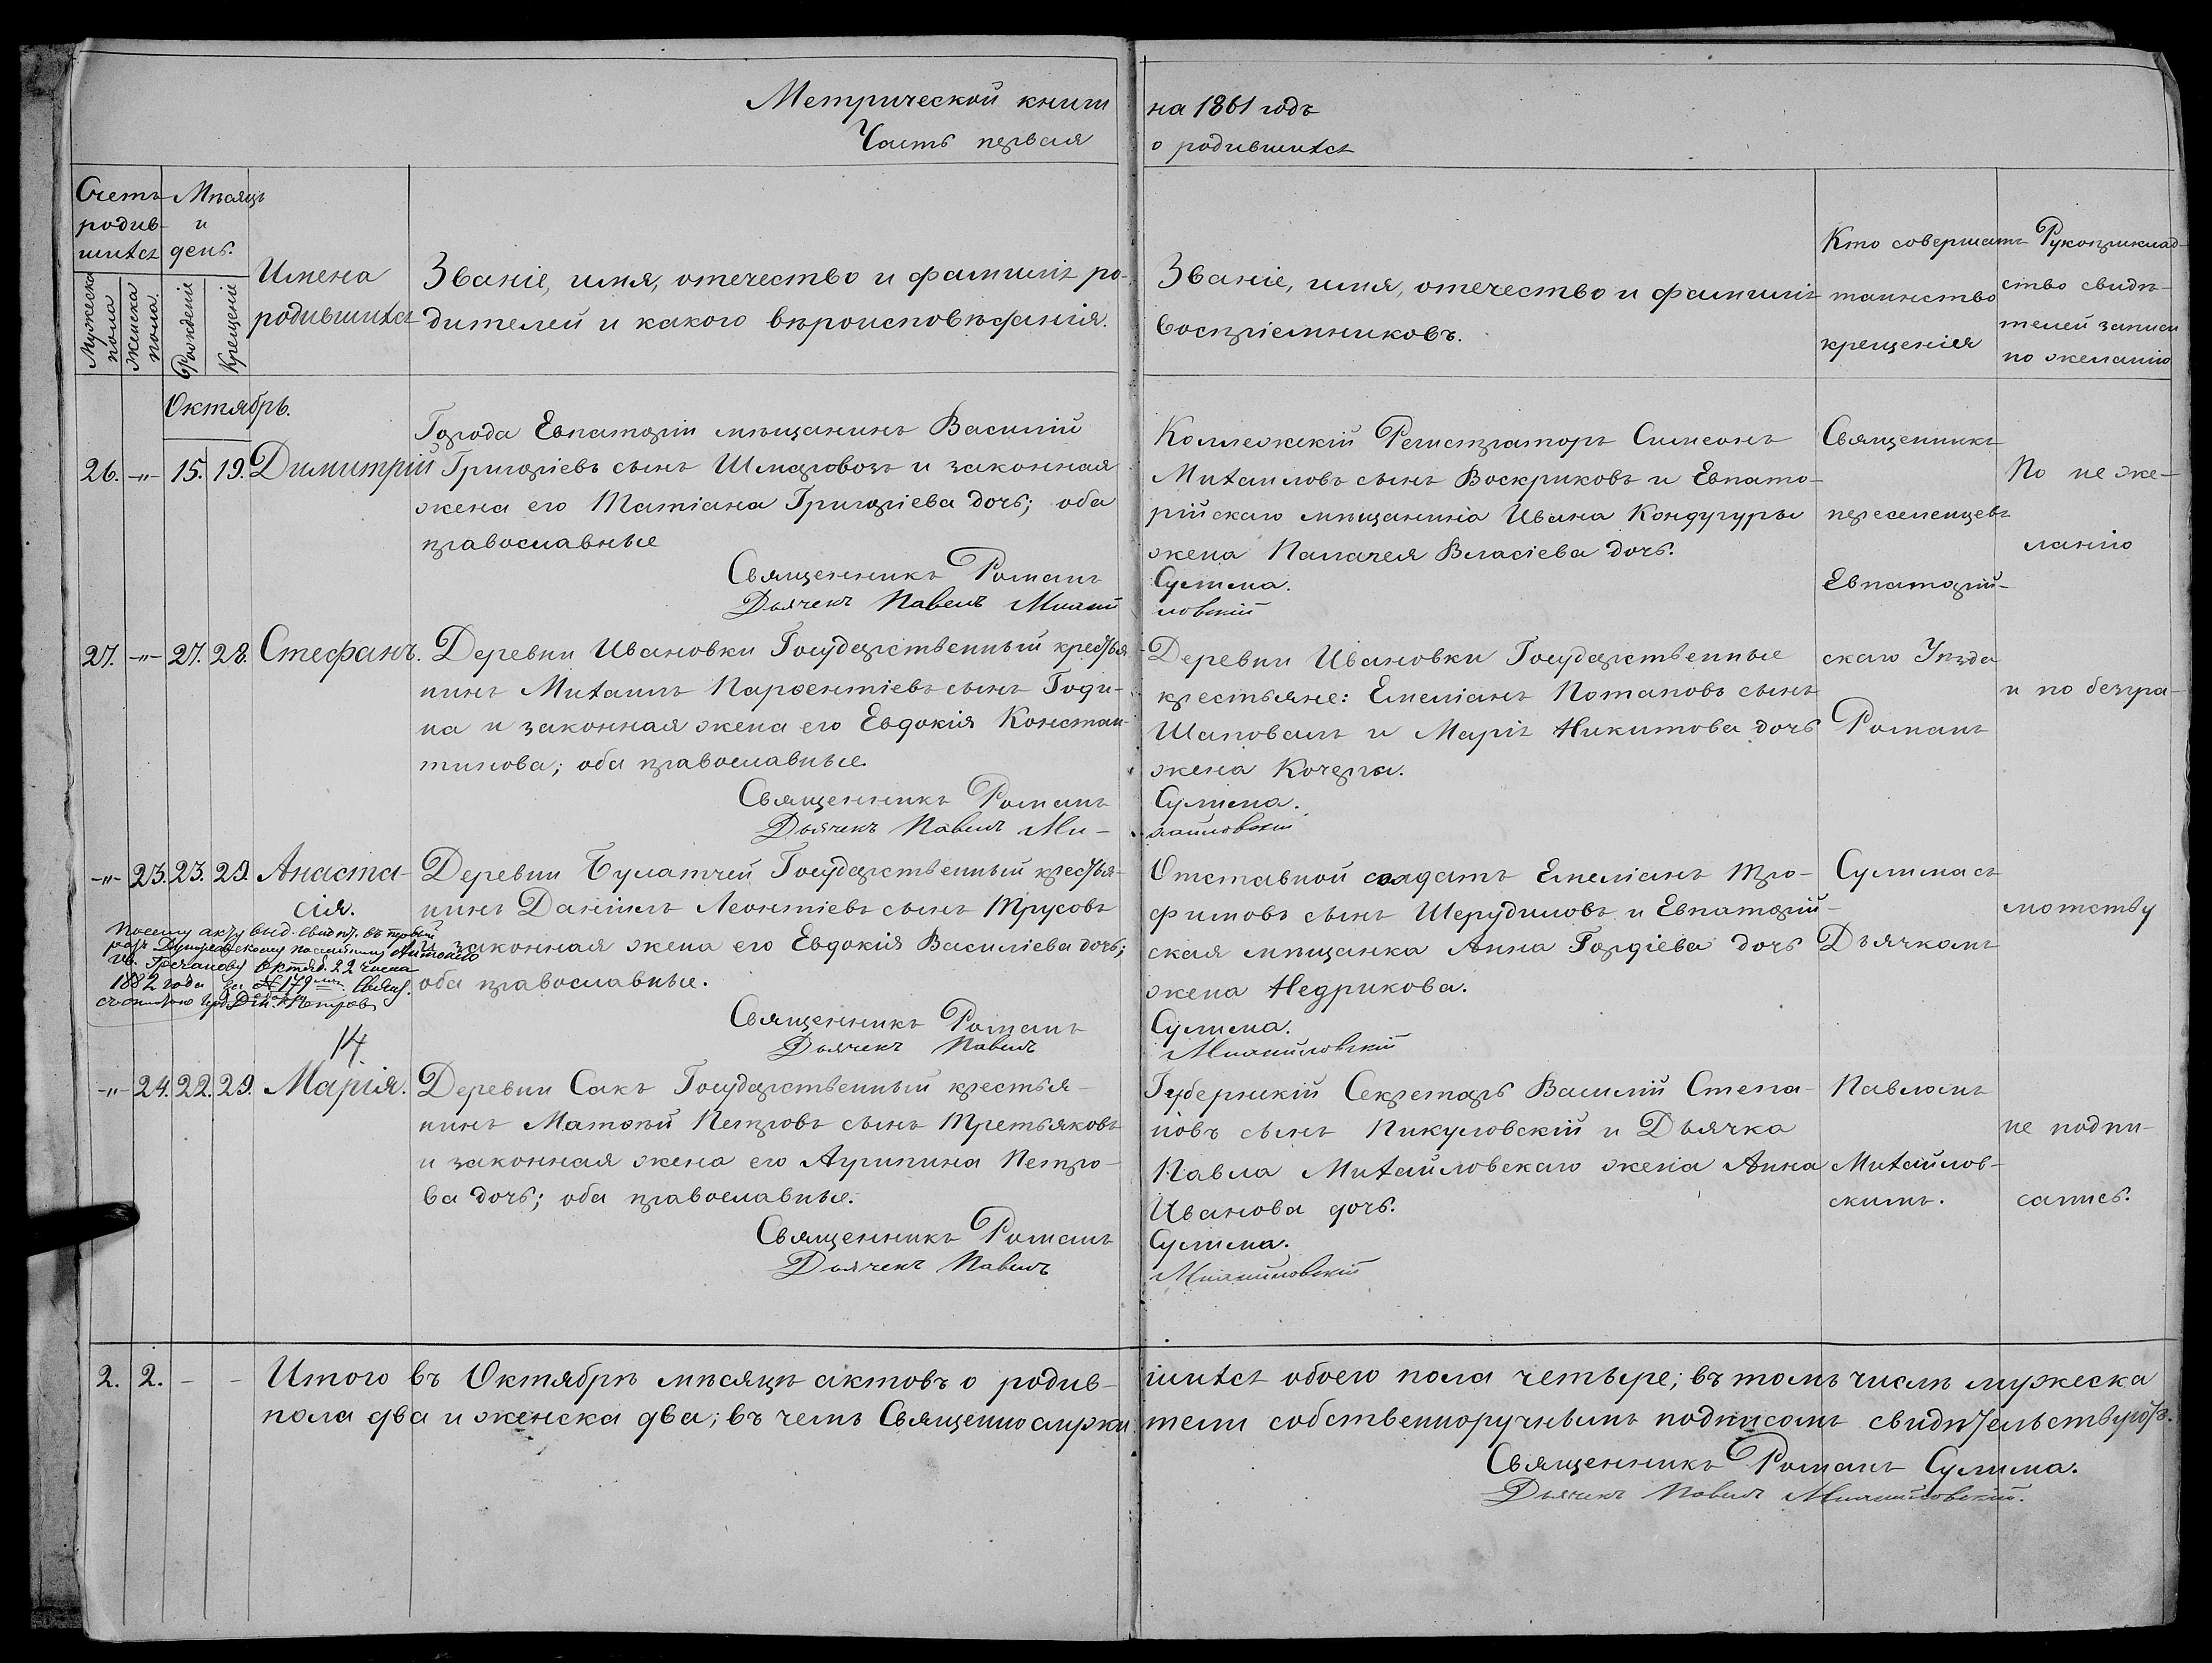 Метрической книги на 1861 годъ
Часть первая о родившихся
Счетъ родив-шихся
Мѣсяцъ и день.
Мужеска пола
Женска пола.
Рожденія
Крещенія
Имена родившихся
Званіе, имя, отечество и фамилія ро-
дителей и какого вѣроисповѣданія.
Званіе, имя, отечество и фамилія
воспріемниковъ.
Кто совершалъ
таинство
крещенія
Рукоприклад-
ство свидѣ-
телей записи
по желанію
Октябрь.
26. -"- 15. 19. Димитрій
Города Евпаторіи мѣщанинъ Василій
Григоріевъ сынъ Шмаровозъ и законная
жена его Татіана Григоріева дочь; оба
православные
Священникъ Романъ Сулима.
Дьячекъ Павелъ Михай ловскій
Коллежскій Регистраторъ Симеонъ
Михаиловъ сынъ Воскриковъ и Евпато-
рійскаго мѣщанина Ивана Кондугуры
жена Палагея Власіева дочь.
27. -"- 27. 28. Стефанъ.
Деревни Ивановки Государственный крестья-
нинъ Михаилъ Парѳентіевъ сынъ Годи-
на и законная жена его Евдокія Констан-
тинова; оба православные.
Священникъ Романъ Сулима.
Дьячекъ Павелъ Ми- хайловскій
Деревни Ивановки Государственные
крестьяне: Емеліанъ Потаповъ сынъ
Шаповалъ и Марія Никитова дочь
жена Кочерга.
-"- 23. 23. 29. Анаста-
сія.
Деревни Булатчей Государственный крестья-
нинъ Даніилъ Леонтіевъ сынъ Трусовъ
и законная жена его Евдокія Василіева дочь;
оба православные.
Священникъ Романъ Сулима.
Дьячекъ Павелъ Михайловскій
Отставной солдатъ Емеліанъ Тро-
фимовъ сынъ Шерудиловъ и Евпаторій-
ская мѣщанка Анна Гордіева дочь
жена Недрикова.
По сему акту выд. свидѣт. въ первый
разъ
Октяб. 22 числа
1882 года за № 179
14
-"- 24. 22. 29. Марія.
Деревни Сакъ Государственный крестья-
нинъ Матѳѣй Петровъ сынъ Третьяковъ
и законная жена его Агрипина Петро-
ва дочь; оба православные.
Священникъ Романъ Сулима.
Дьячекъ Павелъ Михайловскій
Губернскій Секретарь Василій Степа-
новъ сынъ Пикуловскій и Дьячка
Павла Михайловскаго жена Анна
Иванова дочь.
Священникъ
переселенцевъ
Евпаторій-
скаго Уѣзда
Романъ
Сулима съ
Дьячкомъ
Павломъ
Михайлов-
скимъ.
По не же-
ланію
и по безгра-
мотству
не подпи-
сались.
2. 2. - - Итого въ Октябрѣ мѣсяцѣ актовъ о родив-шихся обоего пола четыре; въ томъ числѣ мужеска
пола два и женска два; въ чемъ Священнослужи тели собственноручнымъ подписомъ свидѣтельствуютъ.
Священникъ Романъ Сулима.
Дьячекъ Павелъ Михайловскій.